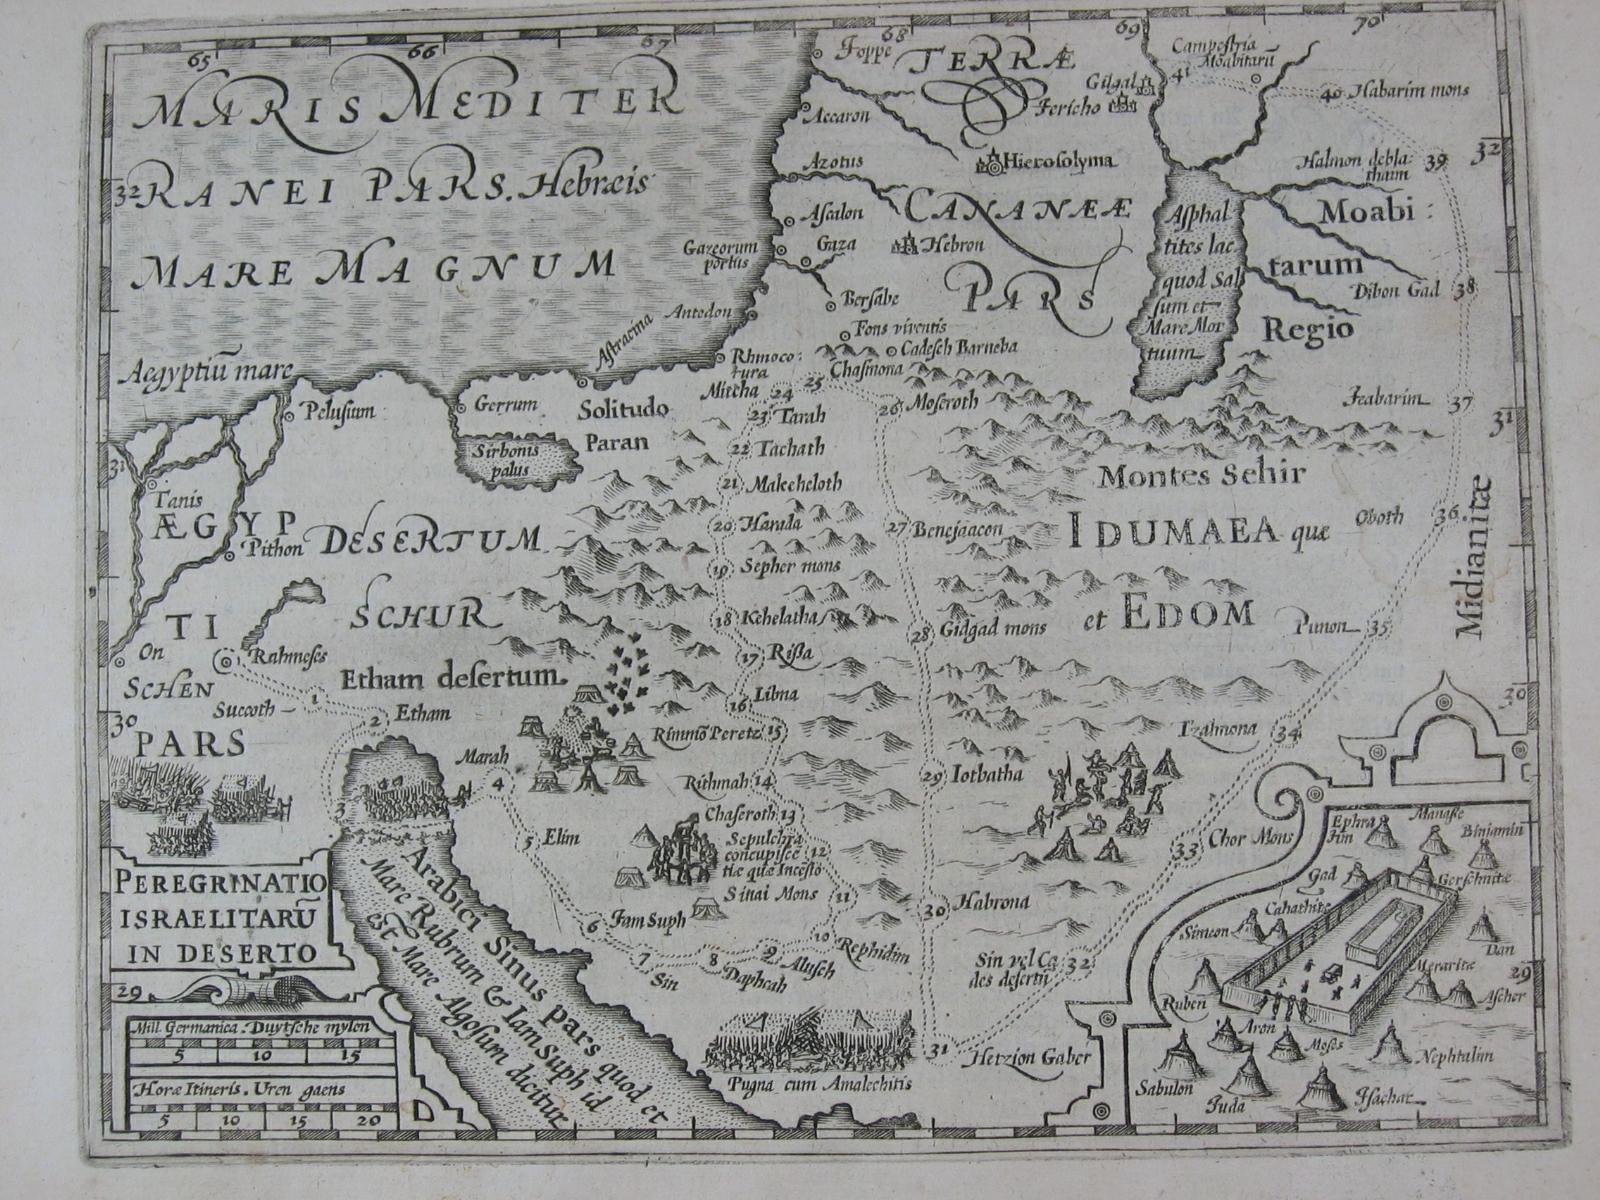 65
66
67
68
69
70
MARIS MEDITER
RANEI PARS. Hebræis
MARE MAGNUM
Aegyptiũ mare
32
Joppe
TERRÆ
Gilgal
Jericho
Campestria
Moabitarũ
41
40 Habarim mons
Accaron
Azotus
Hierosolyma
Halmon debla:
thaim
39
32
Ascalon
CANANÆÆ
Asphal
tites lac
quod Sal
sum et
Mare Mor
tuum
Moabi:
tarum
Regio
Gazeorum
portus
Gaza
Hebron
PARS
Dibon Gad 38
Antedon
Bersabe
Fons viventis
Cadesch Barneba
Astracina
Rhinoco:
tura
Chasmona
25
Mitcha 24
23 Tarah
26 Moseroth
Jeabarim 37
31
Pelusium
Gerrum
Solitudo
Paran
Sirbonis
palus
22 Tachath
21 Makeheloth
Montes Sehir
31
Tanis
ÆGYP
TI
Pithon
DESERTUM
SCHUR
20 Harada
27 Benejaacon
IDUMAEA que
et EDOM
Oboth 36
Midianitæ
19 Sepher mons
18 Kehelatha
28 Gidgad mons
Punon 35
On
Rahmeses
Etham desertum
17 Rissa
SCHEN
Succoth 1
2 Etham
16 Libna
30
30
PARS
Marah
4
Rimmõ Peretz 15
Izalmona 34
Rithmah 14
29 Iotbatha
3
5 Elim
Chaseroth 13
Sepulchra
concupisce
tiæ quæ Incesto
12
Chor Mons
33
Sinai Mons
11
30 Habrona
6 Jam Suph
7
Sin
8
Daphcah
9 Alusch
10 Rephidim
Sin vel Ca
des desertũ
32
31 Hetzion Gaber
Pugna cum Amalechitis
Arabici Sinus pars quod et
Mare Rubrum & Iam Suph id
est Mare Algosum dicitur
PEREGRINATIO
ISRAELITARŨ
IN DESERTO
29
29
Mill. Germanica. Duytsche mylen
5 10 15
Horæ Itineris. Uren gaens
5 10 15 20
Ephra
im
Manasse
Binjamin
Gad
Gerschnitæ
Cahathitæ
Simeon
Dan
Meraritæ
Ascher
Ruben
Aron
Moses
Nephtalim
Sabulon
Juda
Isachar